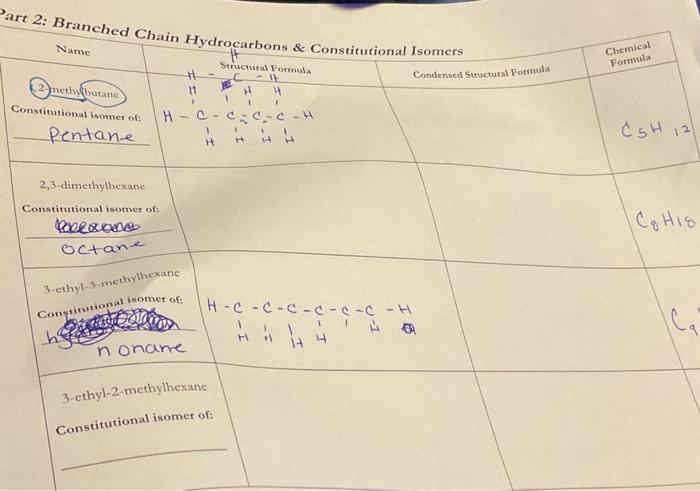 Part 2: Branched Chain Hydrocarbons & Constitutional Isomers
Name
Structural Formula
Condensed Structural Formula
Chemical
Formula
2-methylbutane
Constitutional isomer of:
Pentane
H
H - C - H
H H H
H - C - C - C - C - H
H H H H
C5H12
2,3-dimethylhexane
Constitutional isomer of:
octane
C8H18
3-ethyl-3-methylhexane
Constitutional isomer of:
nonane
H - C - C - C - C - C - C - H
H H H H H
C9
3-ethyl-2-methylhexane
Constitutional isomer of: